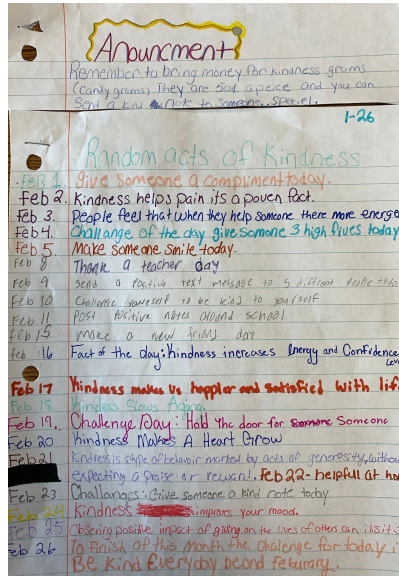 Anouncment
Remember to bring money for kindness grams
(candy grams) They are 50¢ a peice and you can
send a kind note to someone speciel.
1-26
Random acts of Kindness
Feb 1 give someone a compliment today.
Feb 2. Kindness helps pain its a poven fact.
Feb 3. People feel that when they help someone there more energe
Feb 4. Challange of the day give somone 3 high fives today
Feb 5. Make someone smile today.
Feb 8 Thank a teacher day
Feb 9 Send a positive text message to 5 diffrent people toda
Feb 10 Challenge yourself to be kind to yourself
Feb 11 Post positive notes around school
feb 15 make a new friend day
feb 16 Fact of the day: Kindness increases Energy and Confidence
Leve
Feb 17 Kindness makes us happier and satisfied with lif
Feb 18 Kindness Slows Aging
Feb 19. Challenge Day: Hold the door for Someone
Feb 20 Kindness Makes A Heart Grow
Feb 21 Kindness is a type of behavoir marked by acts of generosity, withou
expecting a praise or reward. Feb 22- helpful at ho
Feb 23 Challanges: Give someone a kind note today
Feb 24 Kindness improves your mood.
Feb 25 Observing positive impact of giving on the lives of others can
Feb 26 To Finish of this month the chalenge for today i
Be kind Everyday beond Feburary.